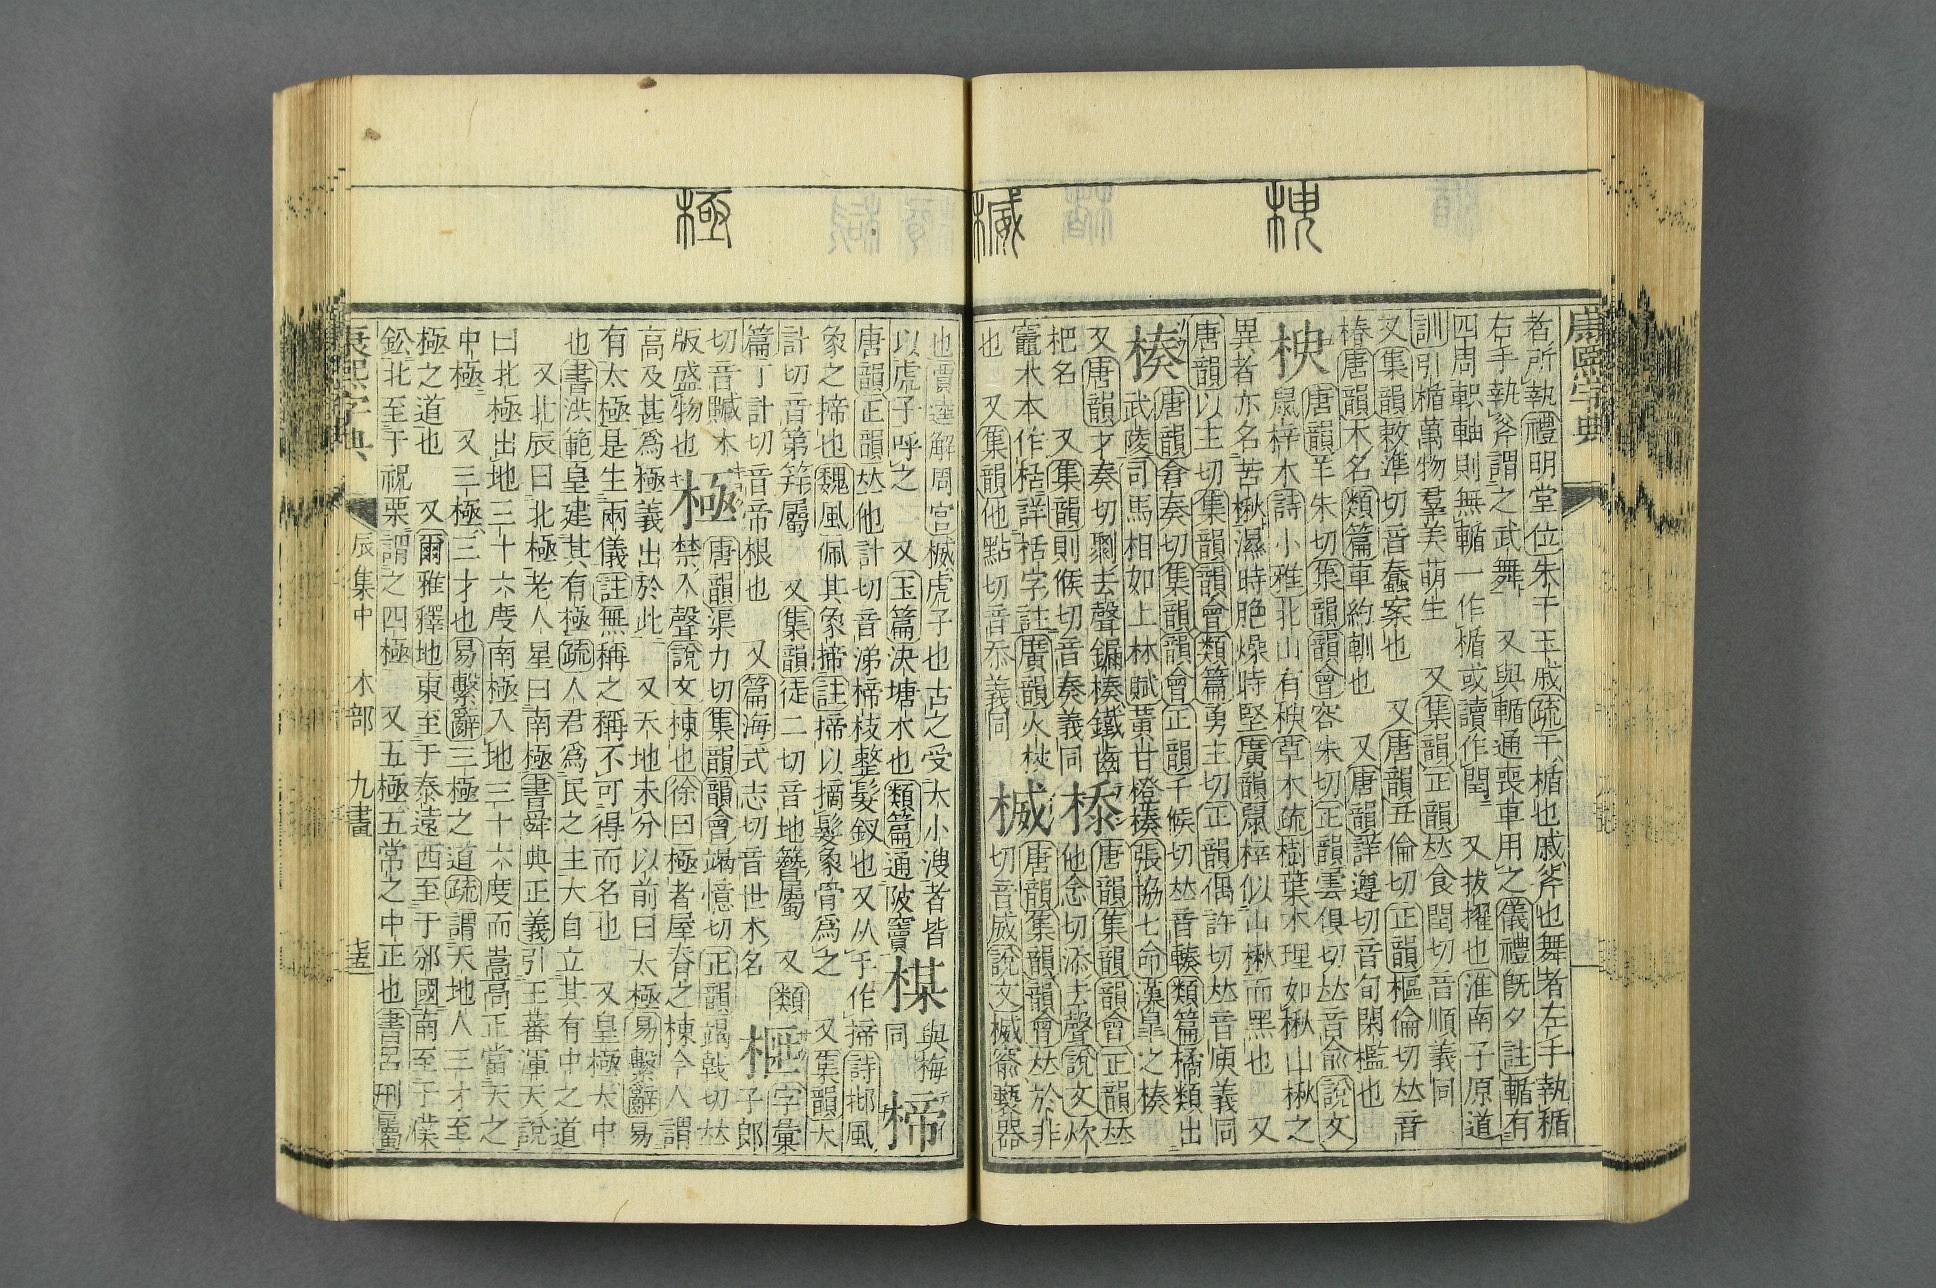 楰
楲
康熙字典
者所執禮明堂位朱干玉戚疏干楯也戚斧也舞者左手執楯
右手執斧謂之武舞 又與輴通喪車用之儀禮旣夕註輴有
四周軹軸則無輴一作楯或讀作閏 又拔擢也淮南子原道
訓引楯萬物羣美萌生 又集韻正韻𠀤食閏切音順義同
又集韻敕準切音蠢案也 又唐韻丑倫切正韻樞倫切𠀤音
椿唐韻木名類篇車約輴也 又唐韻詳遵切音旬閑檻也
楰
唐韻羊朱切集韻韻會容朱切正韻雲俱切𠀤音俞說文
鼠梓木詩小雅北山有楰草木疏樹葉木理如楸山楸之
異者亦名苦楸濕時脃燥時堅廣韻鼠梓似山楸而黑也 又
唐韻以主切集韻韻會類篇勇主切正韻偶許切𠀤音庾義同
楱
唐韻倉奏切集韻韻會正韻千候切𠀤音輳類篇橘類出
武陵司馬相如上林賦黃甘橙楱張協七命漢皐之楱
又唐韻才奏切剽去聲鏂楱鐵齒
把名 又集韻則候切音奏義同
㮇
唐韻集韻韻會正韻𠀤
他念切添去聲說文炊
竈木本作栝詳栝字註廣韻火杖
也 又集韻他點切音忝義同
楲
唐韻集韻韻會𠀤於非
切音威說文楲窬褻器
極
也賈逵解周官楲虎子也古之受大小溲者皆
以虎子呼之 又玉篇決塘木也類篇通陂竇
楳
與梅
同
楴
唐韻正韻𠀤他計切音涕楴枝整髮釵也又从手作揥詩鄘風
象之揥也魏風佩其象揥註揥以摘髮象骨爲之 又集韻大
計切音第筓屬 又集韻徒二切音地簪屬 又類
篇丁計切音帝根也 又篇海式志切音世木名
榧
字彙
子郎
切音贓木
版盛物也
極
唐韻渠力切集韻韻會竭憶切正韻竭戟切𠀤
禁入聲說文棟也徐曰極者屋脊之棟今人謂
高及甚爲極義出於此 又天地未分以前曰太極易繫辭易
有太極是生兩儀註無稱之稱不可得而名也 又皇極大中
也書洪範皇建其有極疏人君爲民之主大自立其有中之道
又北辰曰北極老人星曰南極書舜典正義引王蕃渾天說
曰北極出地三十六度南極入地三十六度而嵩高正當天之
中極 又三極三才也易繫辭三極之道疏謂天地人三才至
極之道也 又爾雅釋地東至于泰遠西至于邠國南至于濮
鈆北至于祝栗謂之四極 又五極五常之中正也書呂刑屬
康熙字典 辰集中 木部 九畫